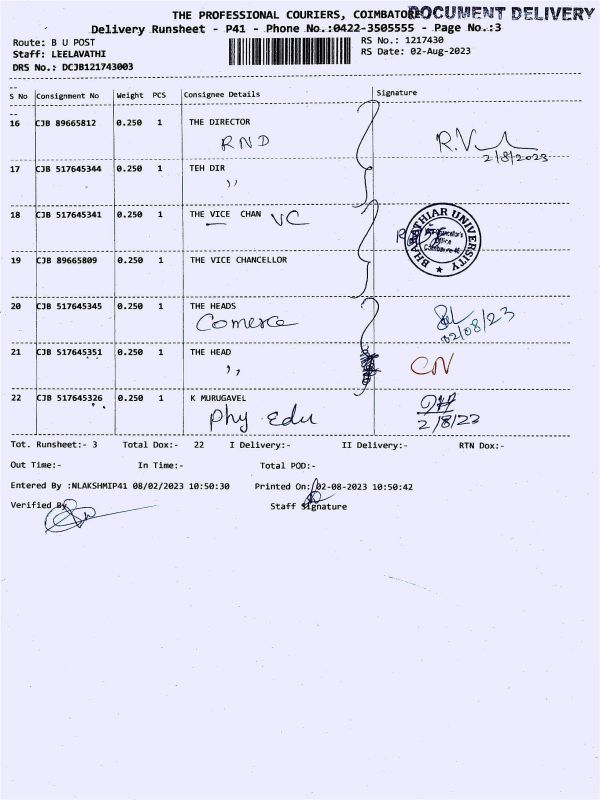 THE PROFESSIONAL COURIERS, COIMBATORE
DOCUMENT DELIVERY
Delivery Runsheet - P41 - Phone No.:0422-3505555 - Page No.:3
Route: B U POST
RS No.: 1217430
Staff: LEELAVATHI
RS Date: 02-Aug-2023
DRS No.: DCJB121743003
S No Consignment No Weight PCS Consignee Details Signature
16 CJB 89665812 0.250 1 THE DIRECTOR
RND R.V
2/8/2023
17 CJB 517645344 0.250 1 TEH DIR
,,
18 CJB 517645341 0.250 1 THE VICE CHAN VC
BHARATHIAR UNIVERSITY
Vice-Chancellor's
Office
Coimbatore-46
19 CJB 89665809 0.250 1 THE VICE CHANCELLOR
20 CJB 517645345 0.250 1 THE HEADS
Comerce 02/08/23
21 CJB 517645351 0.250 1 THE HEAD
,, CN
22 CJB 517645326 0.250 1 K MURUGAVEL
Phy edu 2/8/22
Tot. Runsheet:- 3 Total Dox:- 22 I Delivery:- II Delivery:- RTN Dox:-
Out Time:- In Time:- Total POD:-
Entered By :NLAKSHMIP41 08/02/2023 10:50:30 Printed On: 02-08-2023 10:50:42
Verified By Staff Signature